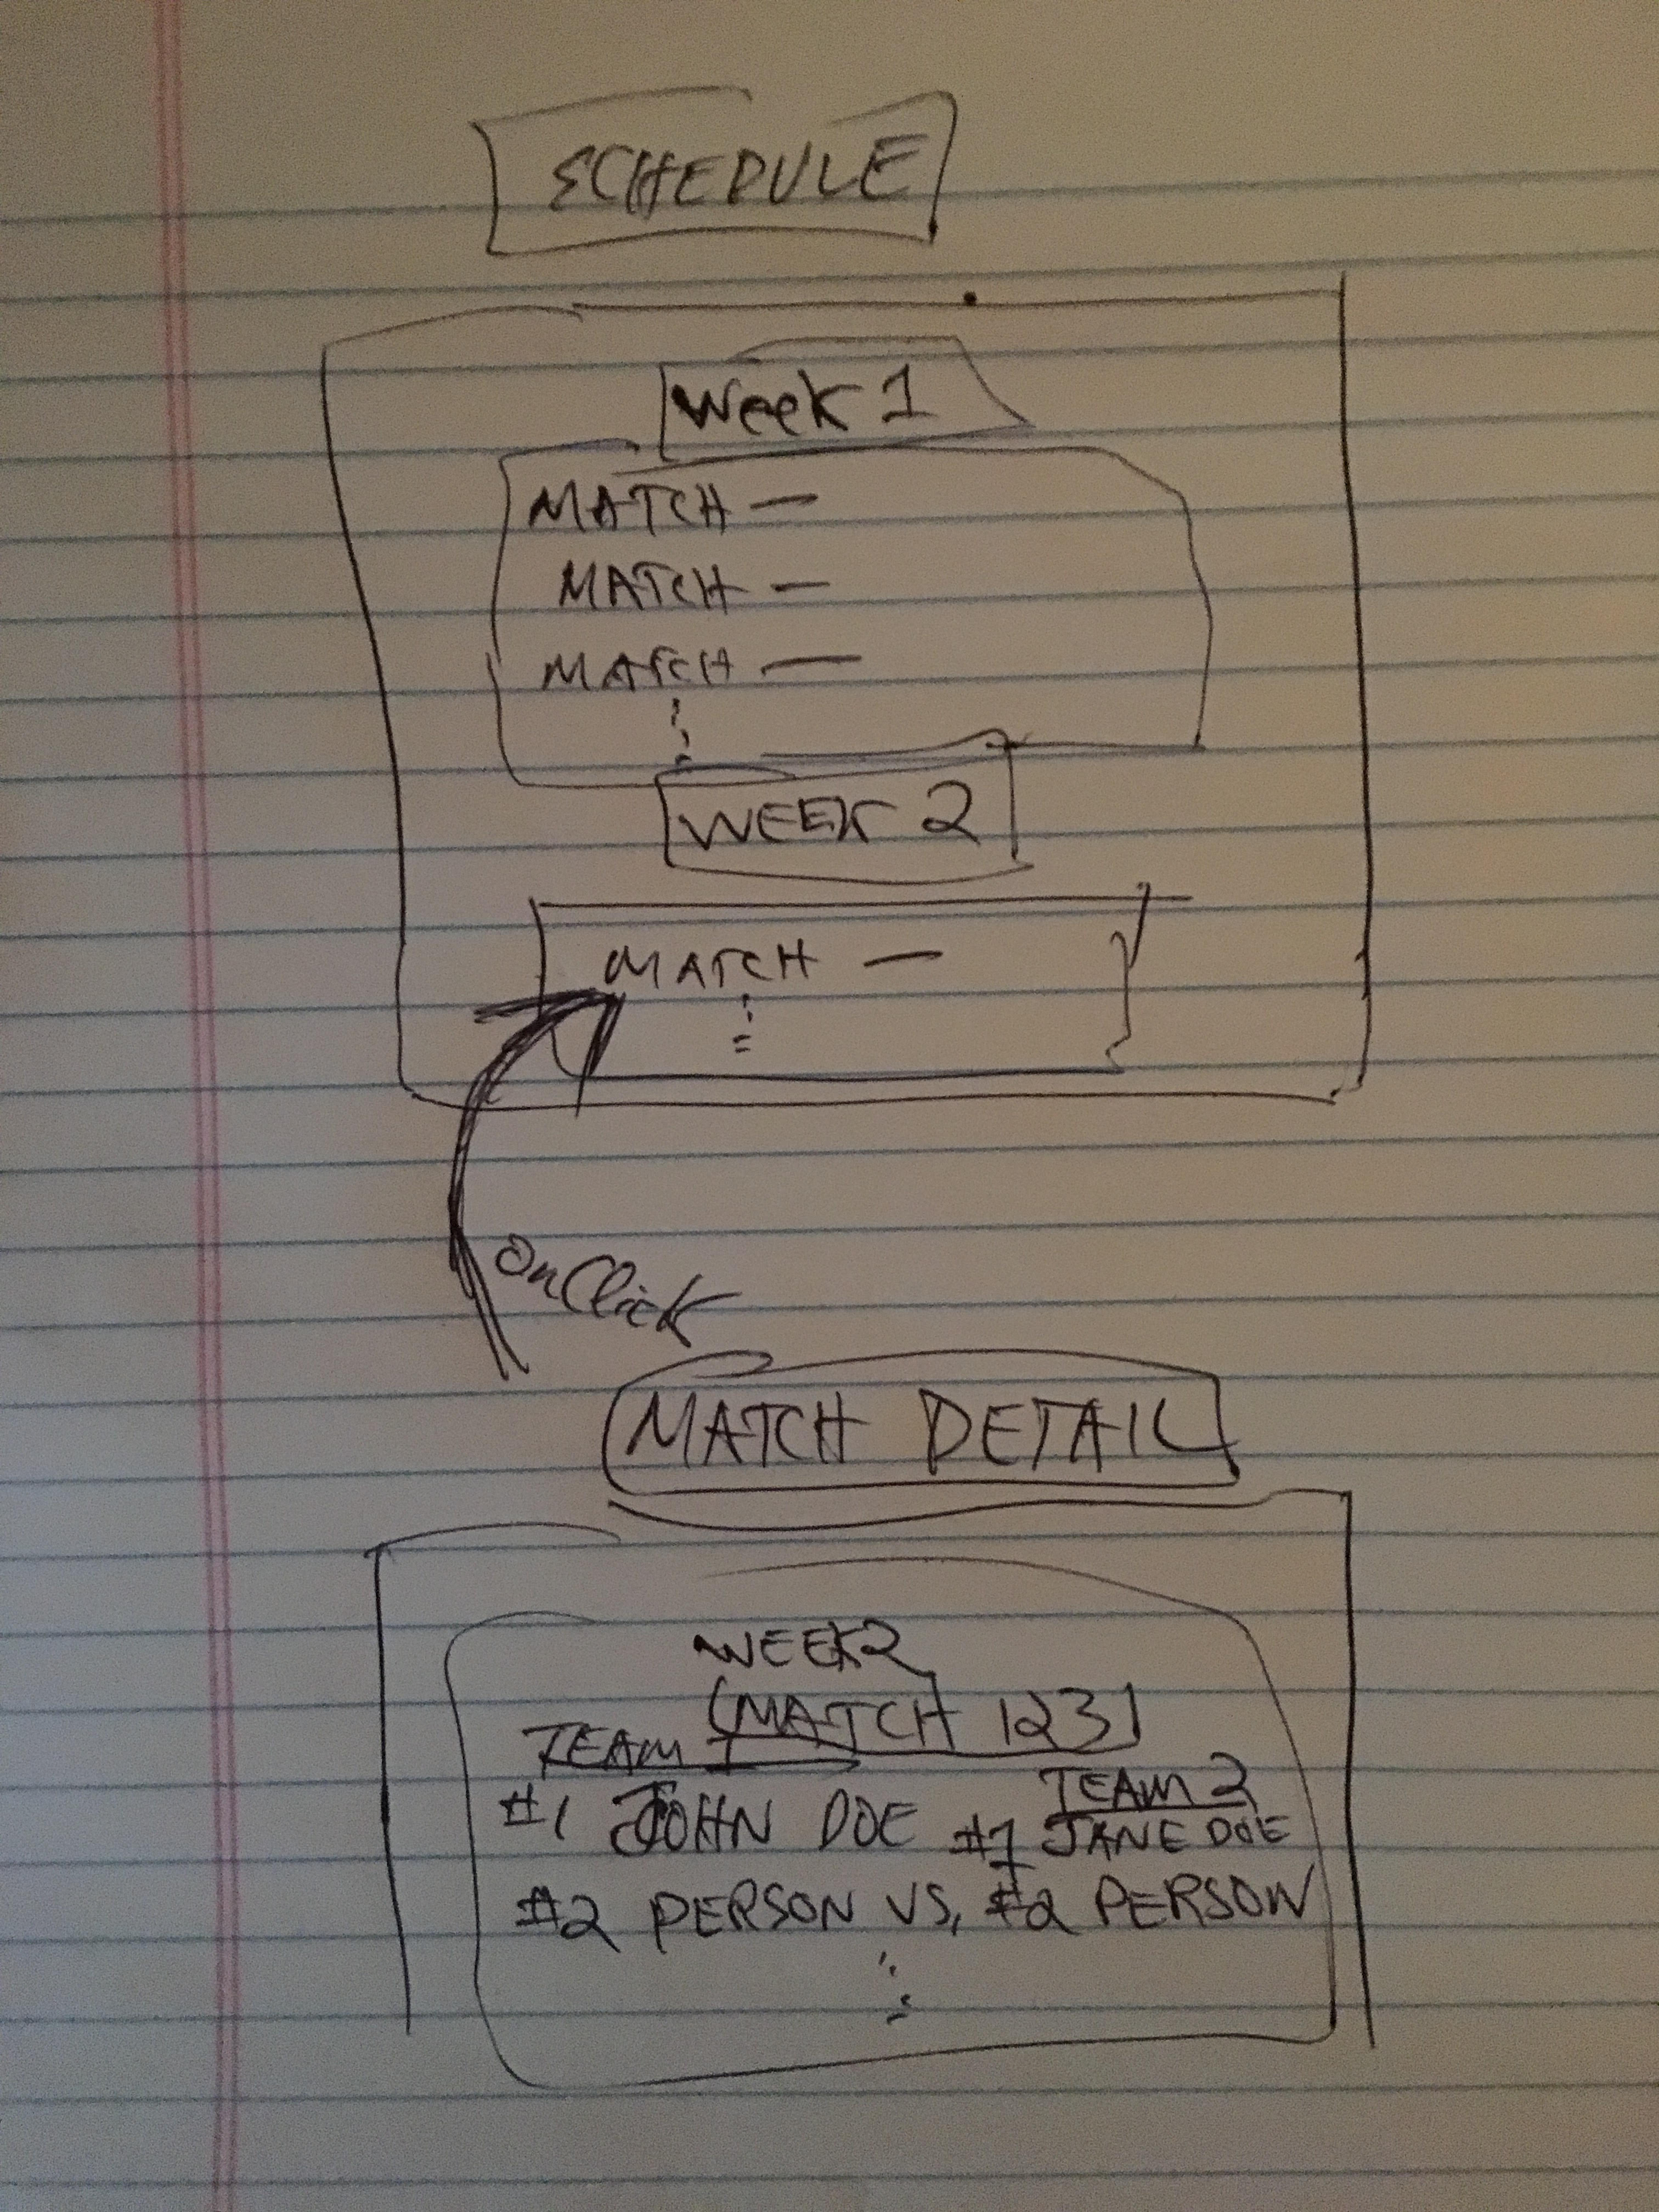 SCHEDULE
Week 1
MATCH —
MATCH —
MATCH —
WEEK 2
MATCH —
onClick
MATCH DETAIL
WEEK 2
MATCH 123
TEAM 1
TEAM 2
#1 JOHN DOE #1 JANE DOE
#2 PERSON VS. #2 PERSON